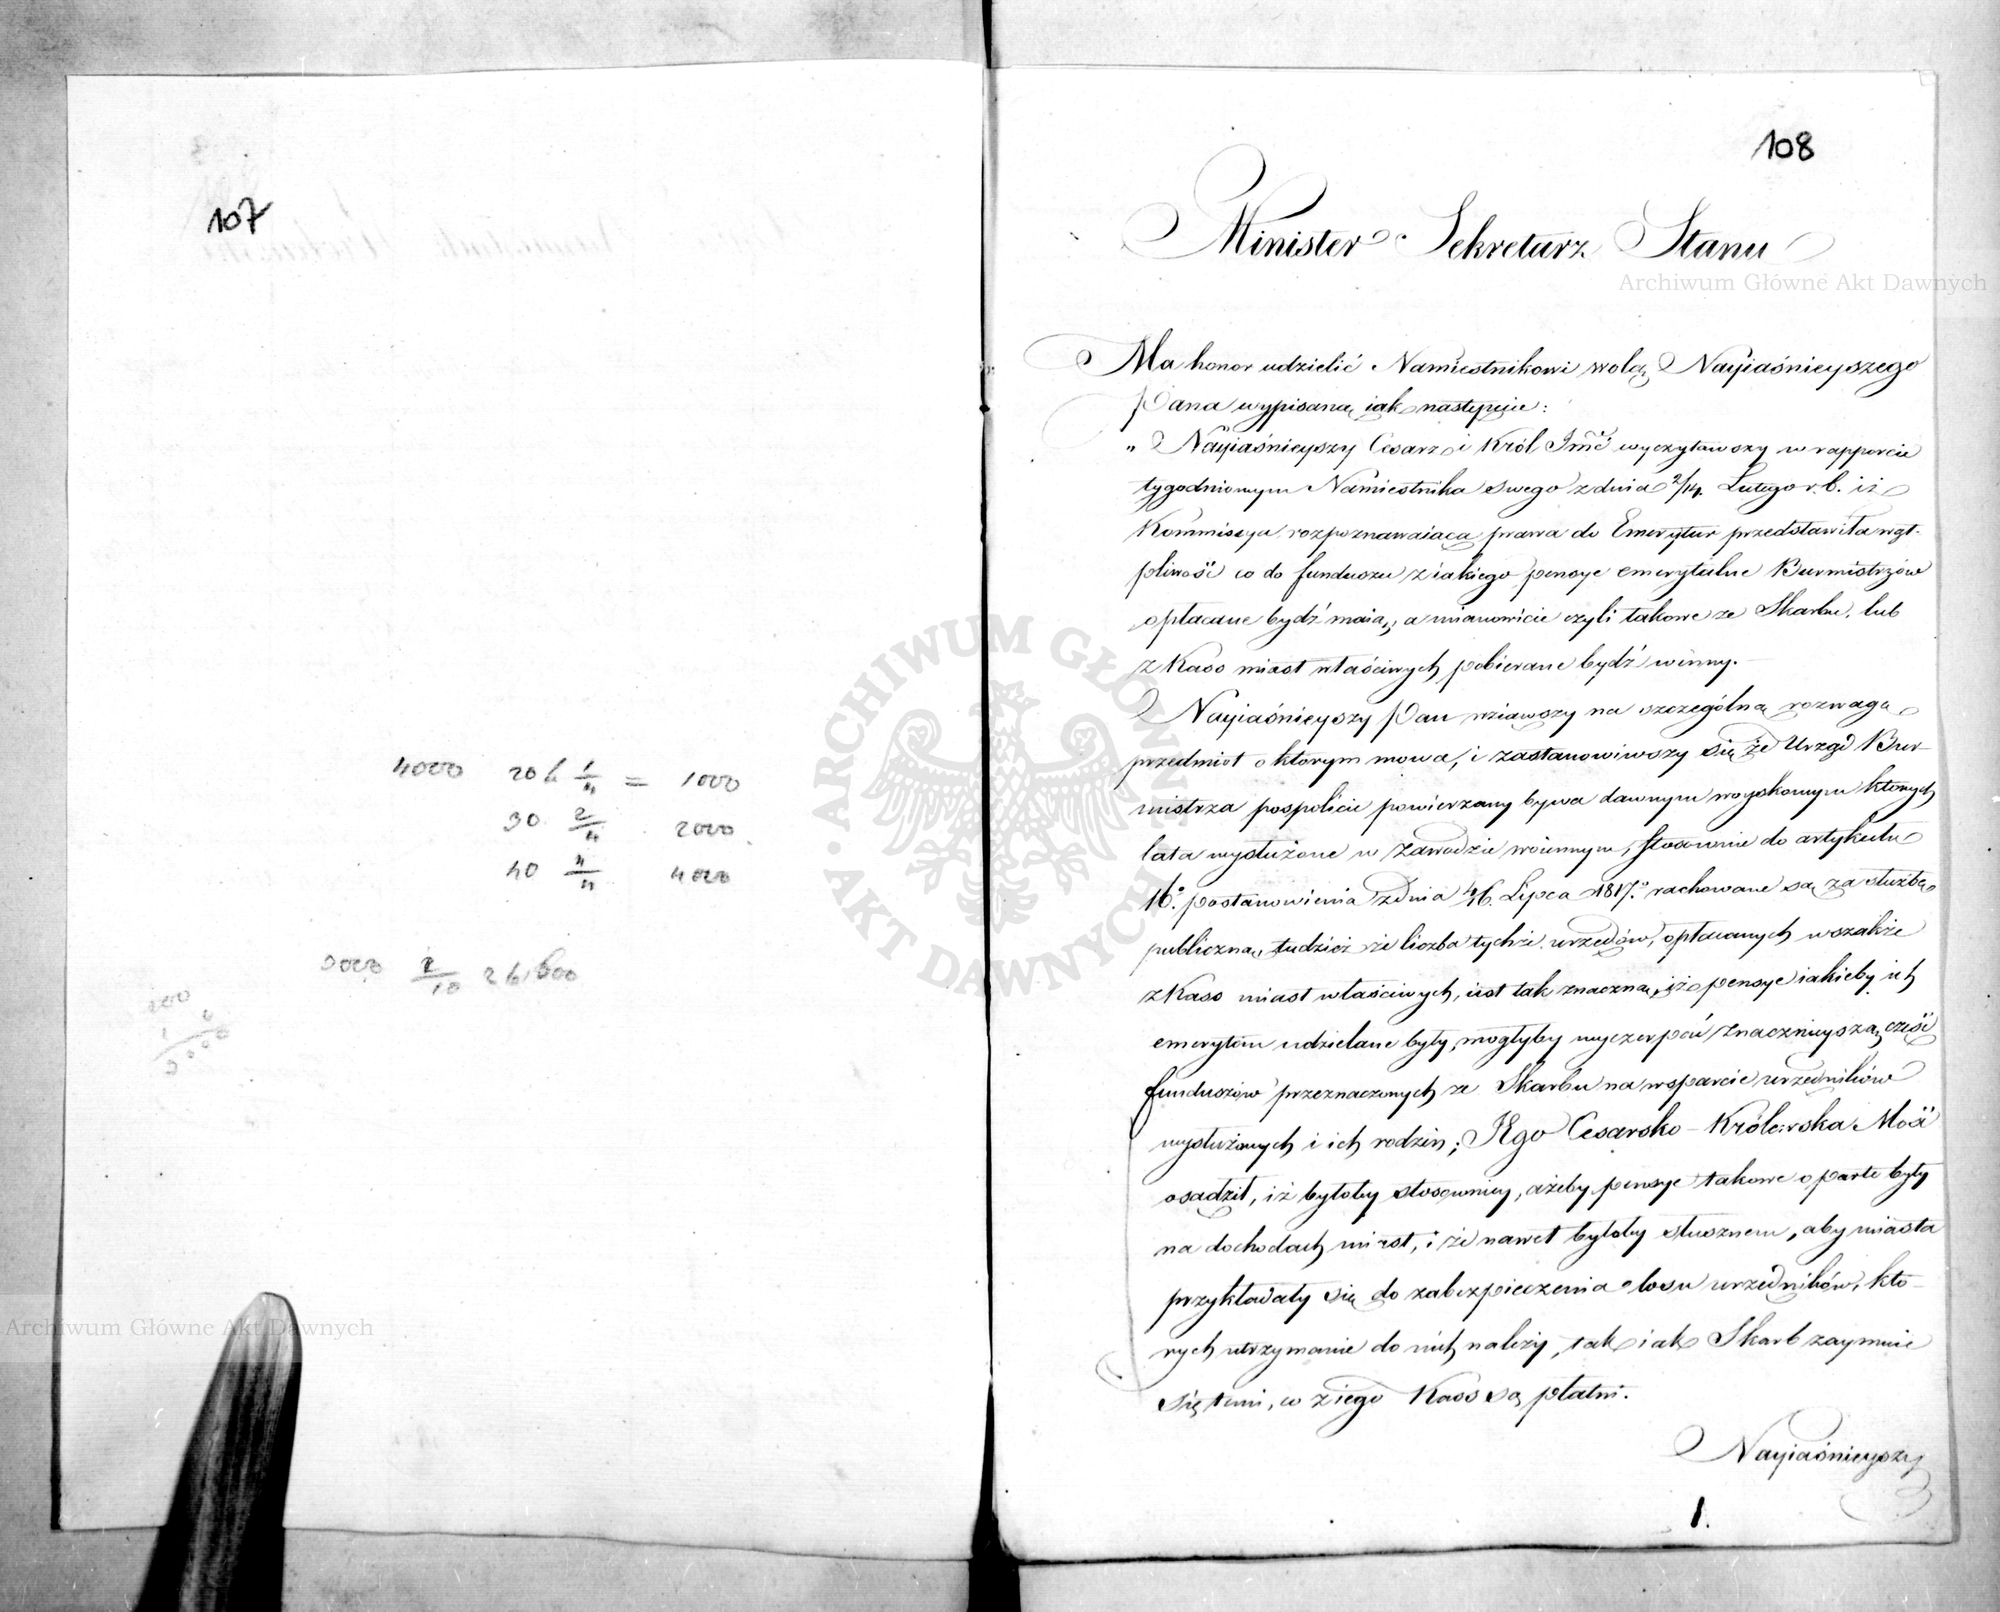 107
4000 20 l. 1/4 = 1000
30 2/4 2000
40 4/4 4000
108
Minister Sekretarz Stanu
Archiwum Główne Akt Dawnych
Ma honor udzielić Namiestnikowi wolą Nayiaśnieyszego
Pana wypisaną iak następuie:
„ Nayiaśnieyszy Cesarz i Król Jmć wyczytawszy w rapporcie
tygodniowym Namiestnika swego z dnia 2/14. Lutego r. b. iż
Kommissya rozpoznawaiąca prawa do Emerytur przedstawiła wąt-
pliwość co do funduszu z iakiego pensye emerytalne Burmistrzów
opłacane bydź maią, a mianowicie czyli takowe ze Skarbu, lub
z Kass miast właściwych pobierane bydź winny.
Nayiaśnieyszy Pan wziąwszy na szczególną rozwagę
przedmiot o którym mowa, i zastanowiwszy się że Urząd Bur-
mistrza pospolicie powierzany bywa dawnym woyskowym których
lata wysłużone w zawodzie woiennym, stosownie do artykułu
16.º postanowienia z dnia 4/16. Lipca 1817.º rachowane są za służbę
publiczną, tudzież że liczba tychże urzędów, opłacanych wszakże
z Kass miast właściwych, iest tak znaczna, iż pensye iakieby ich
emerytom udzielane były, mogłyby wyczerpać znacznieyszą część
funduszów przeznaczonych ze Skarbu na wsparcie urzędników
wysłużonych i ich rodzin; Jego Cesarsko-Królewska Mość
osądził, iż byłoby stosowniey, ażeby pensye takowe oparte były
na dochodach miast, i że nawet byłoby słusznem, aby miasta
przykładały się do zabezpieczenia losu urzędników, któ-
rych utrzymanie do nich należy, tak iak Skarb zaymuie
się temi, co z iego Kass są płatni.
Nayiaśnieyszy
1.
ARCHIWUM GŁÓWNE AKT DAWNYCH
Archiwum Główne Akt Dawnych